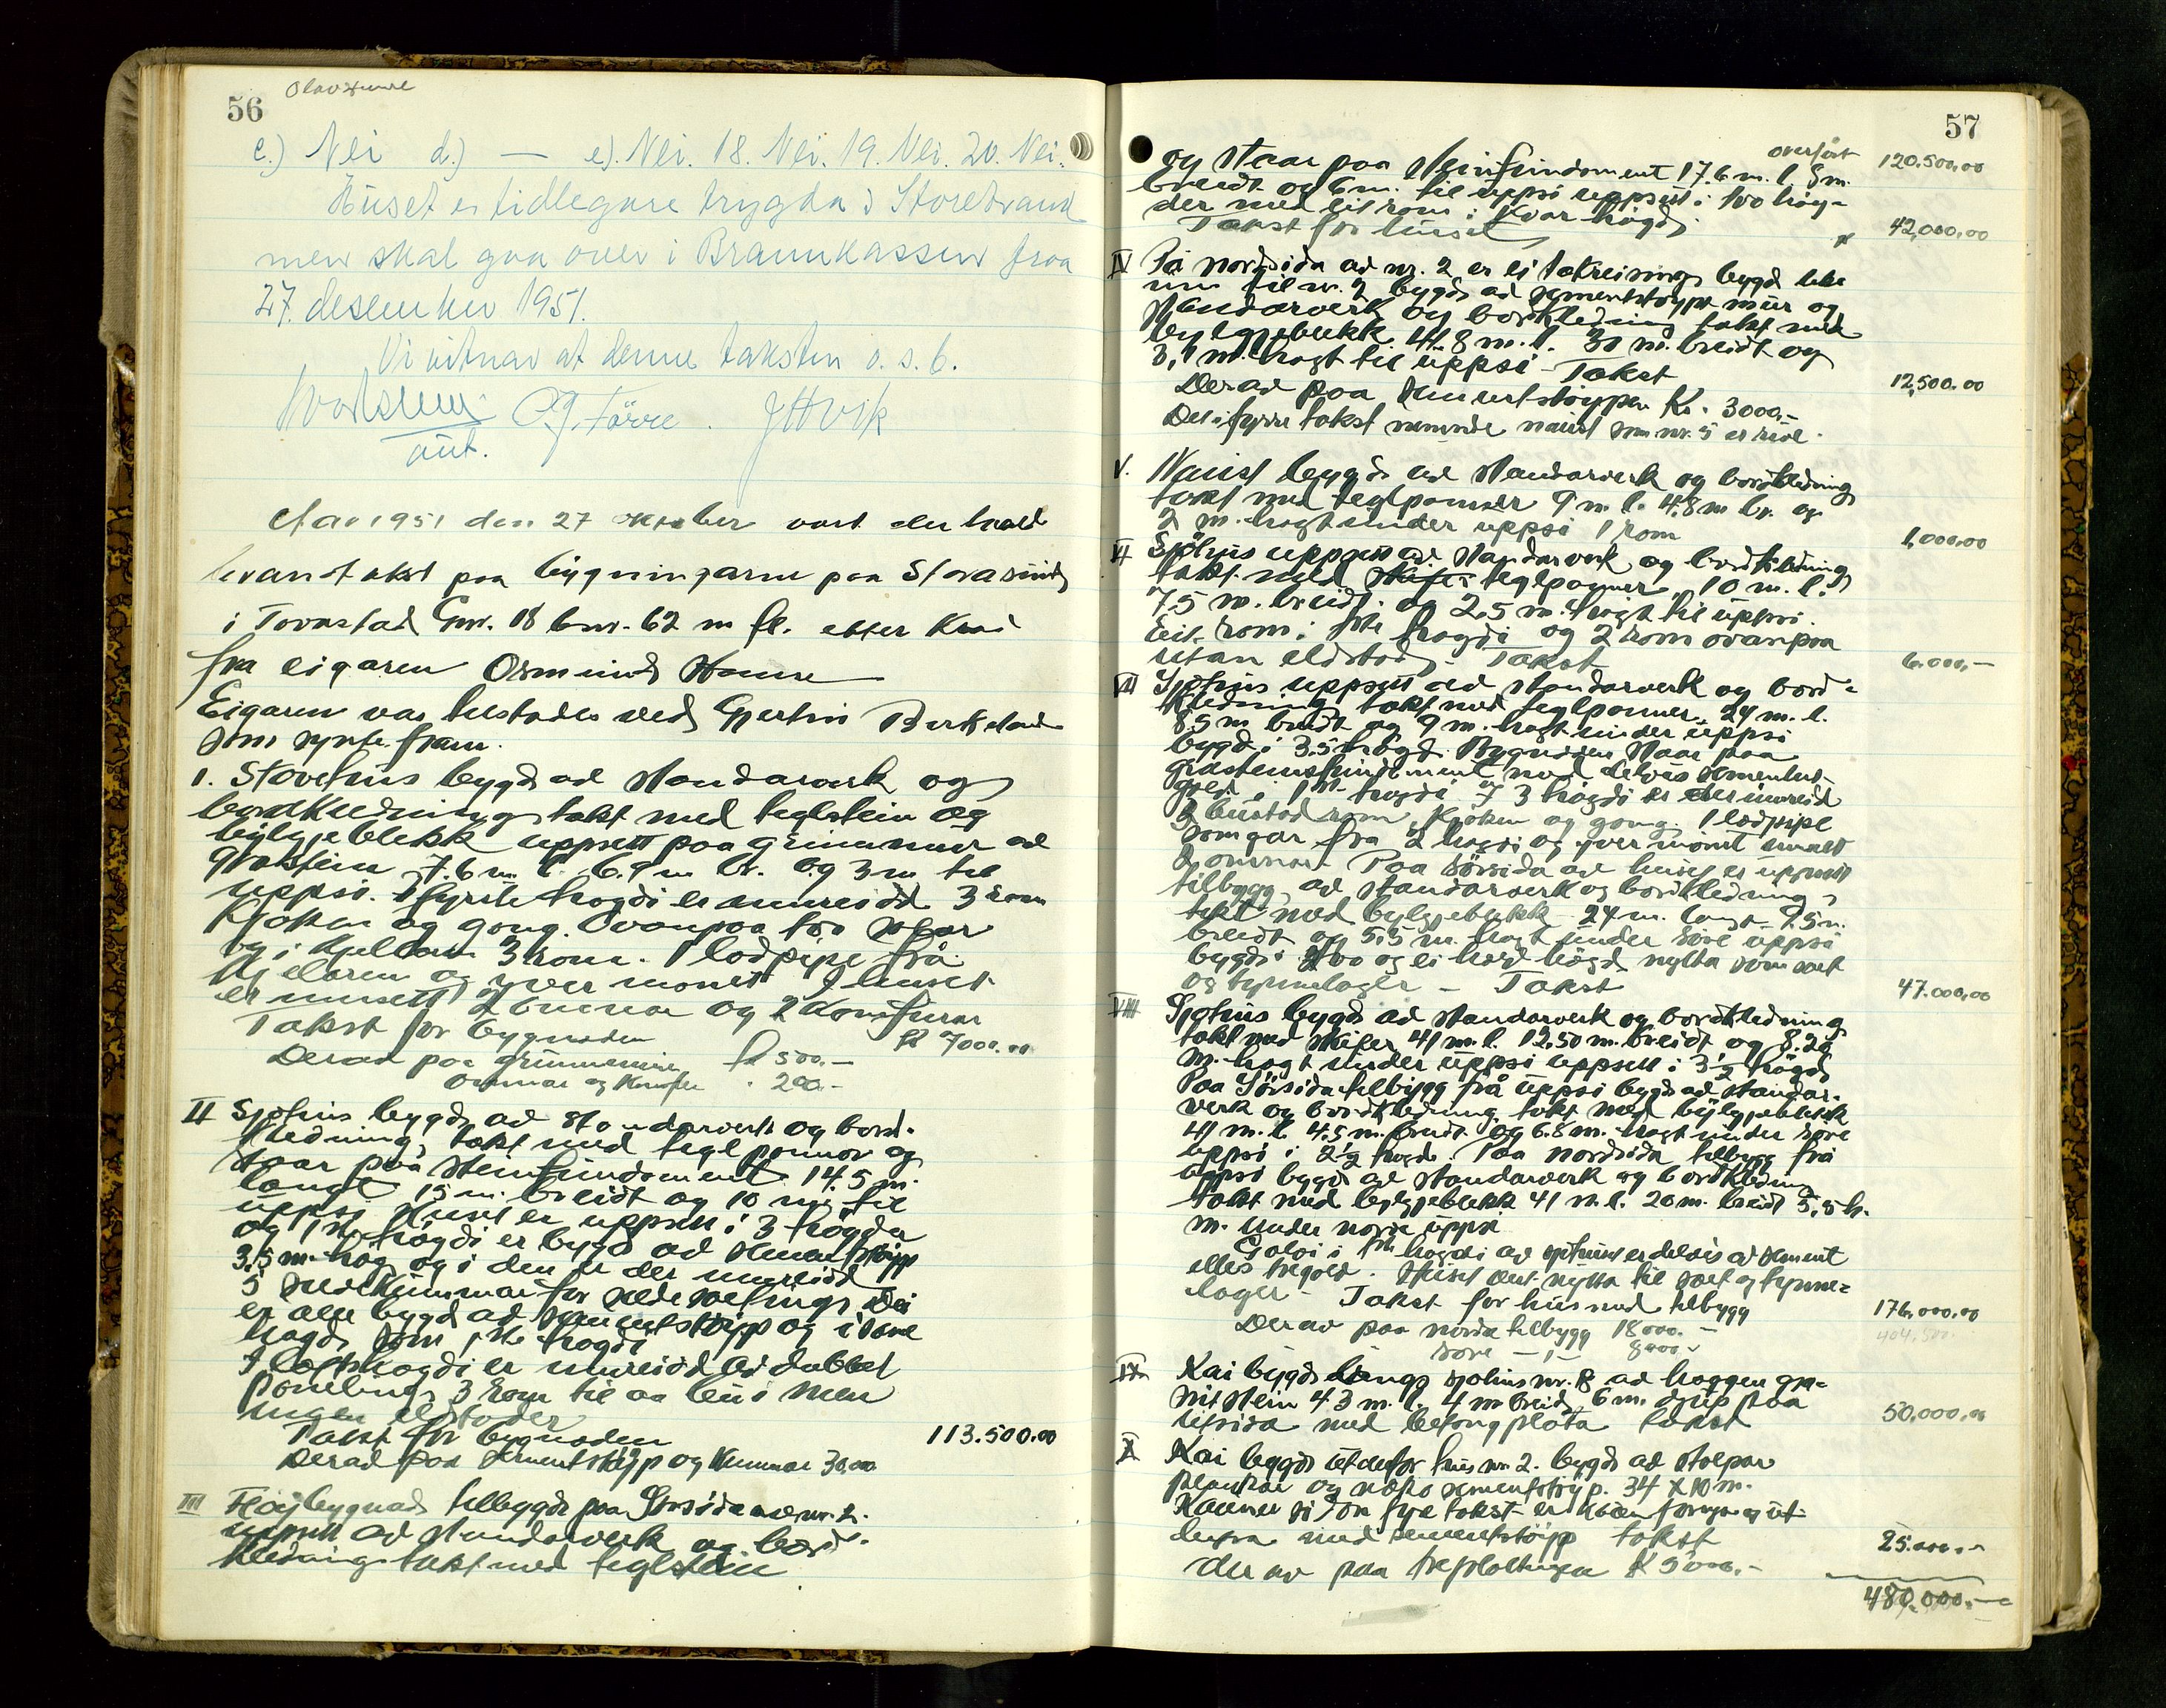 56
c.) Nei d.) — e). Nei. 18. Nei. 19. Nei. 20. Nei.
Huset er tidlegare trygda i Storebrand
men skal gaa over i Brannkassen fraa
27. desember 1951.
Vi vitnar at denne taksten o. s. b.
O. J. Førre. J H Vik
aut.
Aar 1951 den 27 oktober vart der halde
branntakst paa bygningarne paa Storasund
i Torvastad Gnr. 18 bnr. 62 m fl. etter krav
fra eigaren Osmund Hauske
Eigaren var tilstades ved Gjertin Birkeland
som synte fram.
1. Stovehus bygd ad standarverk og
bordkledning, takt med teglstein og
bylgjeblekk uppsett paa grunnmur ad
graastein 7.6 m l. 6.9 m br. og 3 m til
uppsi. I fyrste høgdi er innreidd 3 rom
Kjøken og gong. Ovanpaa
og i Kjellaren 3 rom. 1 lodpipe frå
Kjellaren og yver mønet. I huset
er innsett 2 omnar og 2 Komfurar
Takst for bygnaden kr 7000.00
Derad paa grunnmuren kr 500.—
Omnar og Komfur . 200.—
II Sjøhus bygd ad standarverk og bord-
kledning, takt med teglpannor og
staar paa steinfundament 14.5 m.
langt 15 m. breidt og 10 m til
uppsi Huset er uppsett i 3 høgder
og 1ste høgdi er bygd ad sementstøypt
3,5 m. høg og i den er der innreidd
5 sildekummar for sildesalting. Dei
er alle bygd ad sementstøyp og i same
høgd som 1ste høgdi
I loftshøgdi er innreidd ad dubbel
panelings 3 rom til aa bu i men
ingen eldstader
Takst for bygnaden 113.500.00
Derad paa sementstøyp og Kummar 30,000
III Høgbygnad tilbygd paa Sørsida av nr. 2.
uppsett ad standarverk og bord-
kledning takt med teglstein
57
overført 120.500,00
og staar paa steinfundament 17.6 m. l. 8 m.
breidt og 6 m. til uppsi uppsett i two høg-
der med eit rom i kvar høgd.
Takst for huset 42,000,00
IV På nordsida ad nr. 2 er ei takreising bygd like
inn til nr. 2 bygd ad sementstøypt mur og
standarverk og bordkledning takt med
bylgjeblekk 44.8 m. l. 30 m. breidt og
3,1 m. høgt til uppsi - Takst 12,500.00
Derad paa sementstøypen Kr. 3000,-
Det i fyrre takst nemnde naust som nr. 5 er rive.
V. Naust bygd ad standarverk og bordkledning
takt med teglpannor 9 m. l. 4.8 m br. og
2 m. høgt under uppsi 1 rom 1,000.00
VI Sjøhus uppsett ad standarverk og bordkledning
takt med teglpanner, 10 m. l.
7.5 m. breidt og 2.5 m. høgt til uppsi.
Eit rom i 1ste høgdi og 2 rom ovanpaa
utan eldstad. Takst 6.000,—
VII Sjøhus uppsett ad standarverk og bord-
kledning takt med teglpanner, 24 m. l.
8.5 m breidt og 9 m. høgt under uppsi
bygd i 3.5 høgd. Bygnaden staar paa
graasteinsfundament med delvis sement-
golv i 1ste høgdi. I 3 høgdi er der innreidd
3 bustadrom, Kjøken og gong. 1 lodpipe
som gar fra 2 høgdi og yver mønet innsett
2 omnar. Paa sørsida ad huset er uppsett
tilbygg, ad standarverk og bordkledning,
takt med bylgjeblekk 24 m. langt 7.5 m.
breidt og 5.5 m. høgt under søre uppsi
bygd i two og ei halv høgd nytta som salt
og tynnelager — Takst 47.000,00
VIII Sjøhus bygd ad standarverk og bordkledning
takt med skifer 41 m. l. 12.50 m. breidt og 8.20
m. høgt under uppsi uppsett i 3½ høgd
Paa Sørsida tilbygg frå uppsi bygd ad standar-
verk og bordkledning takt med bylgjeblekk
41 m. l. 4.5 m. breidt og 6.8 m. høgt under søre
uppsi i 2½ høgd. Paa nordsida tilbygg frå
uppsi bygd ad standarverk og bordkledning
takt med bylgjeblekk 41 m. l. 20 m. breidt 5,5 h.
m. under nordre uppsi
Golvi i 1ste høgdi ad sjøhuset er delvis ad sement
elles tregolv. Huset vert nytta til salt og tynne-
lager — Takst for hus med tilbygg 176,000.00
Derav paa nordre tilbygg 18 000. — 404,500.
søre — „ — 8000.-
IX Kai bygd langs sjøhus nr. 8 ad hoggen gra-
nitstein 43 m. l. 4 m breid, 6 m. djup paa
utsida med betongplata takst 50.000,00
X Kai bygd utanfor hus nr. 2. bygd ad stolpar
plankar og sementstøyp. 34 x 10 m.
med sementstøyp takst 25.000.—
der av paa treplattingen kr 5000.—
480.000.—